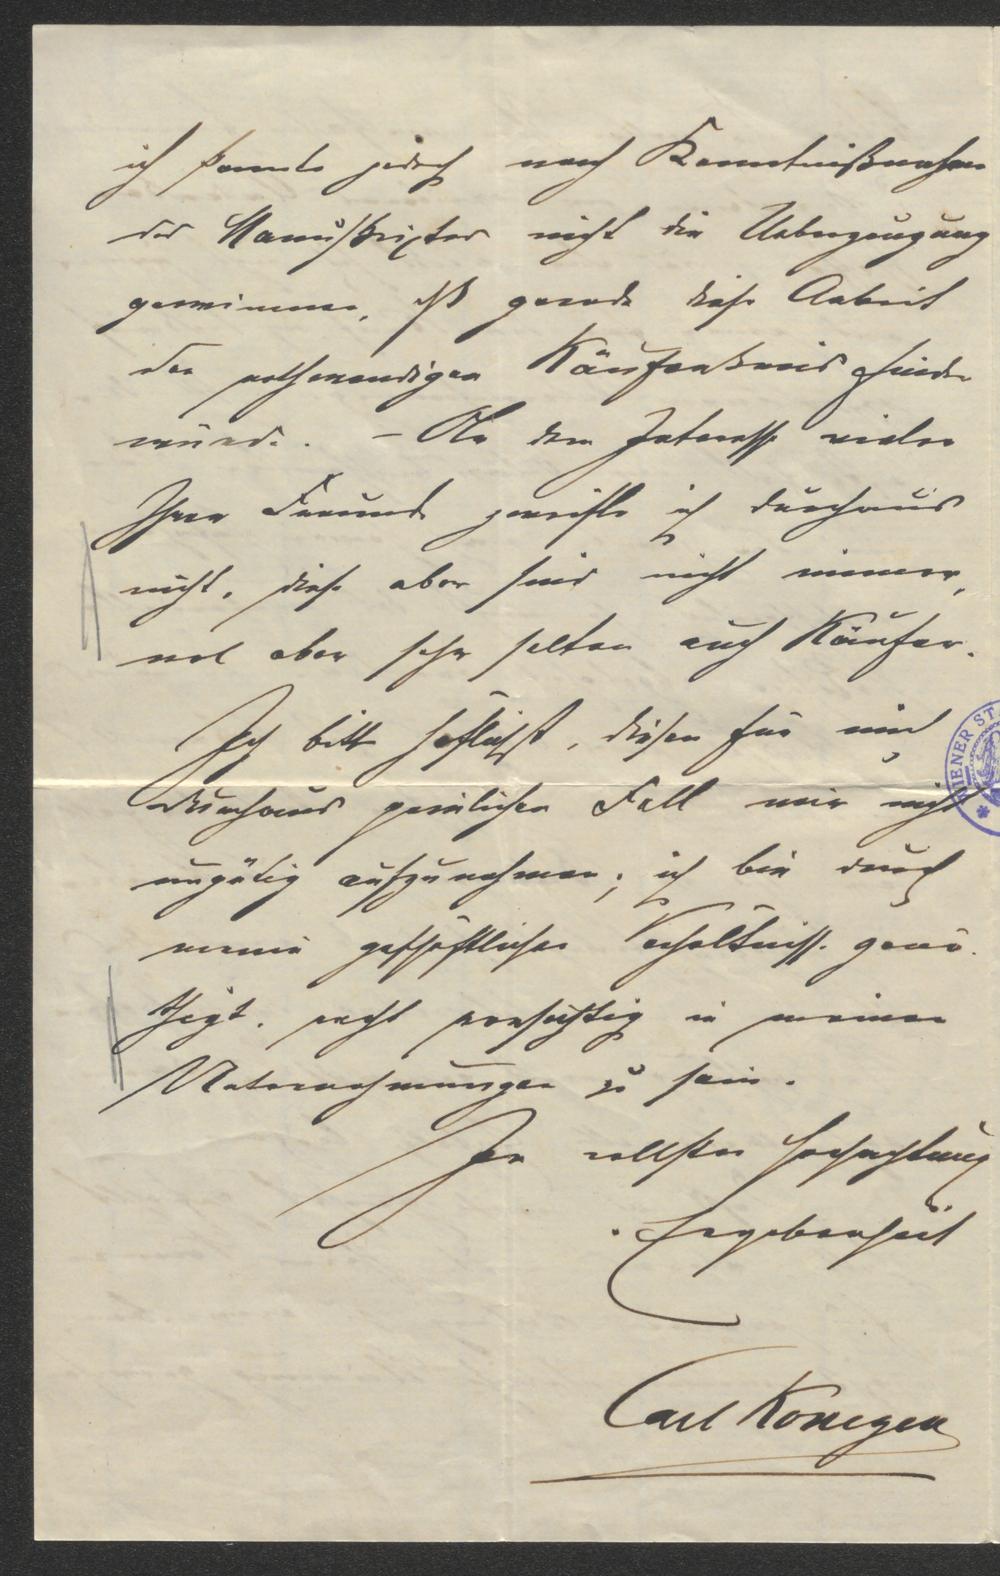 ich konnte jedoch nach Kenntnißnahme
des Manuskriptes nicht die Ueberzeugung
gewinnen, daß gerade diese Arbeit
den nothwendigen Käuferkreis finden
würde. – An dem Interesse vieler
Ihrer Freunde zweifle ich durchaus
nicht, diese aber sind nicht immer,
wol aber sehr selten auch Käufer.
Ich bitte höflichst, diesen für mich
durchaus peinlichen Fall mir nicht
ungütig aufzunehmen; ich bin durch
meine geschäftlichen Verhältnisse genö-
thigt, recht vorsichtig in meinen
Unternehmungen zu sein.
In vollster Hochachtung
Ergebenheit
Carl Konegen
WIENER ST